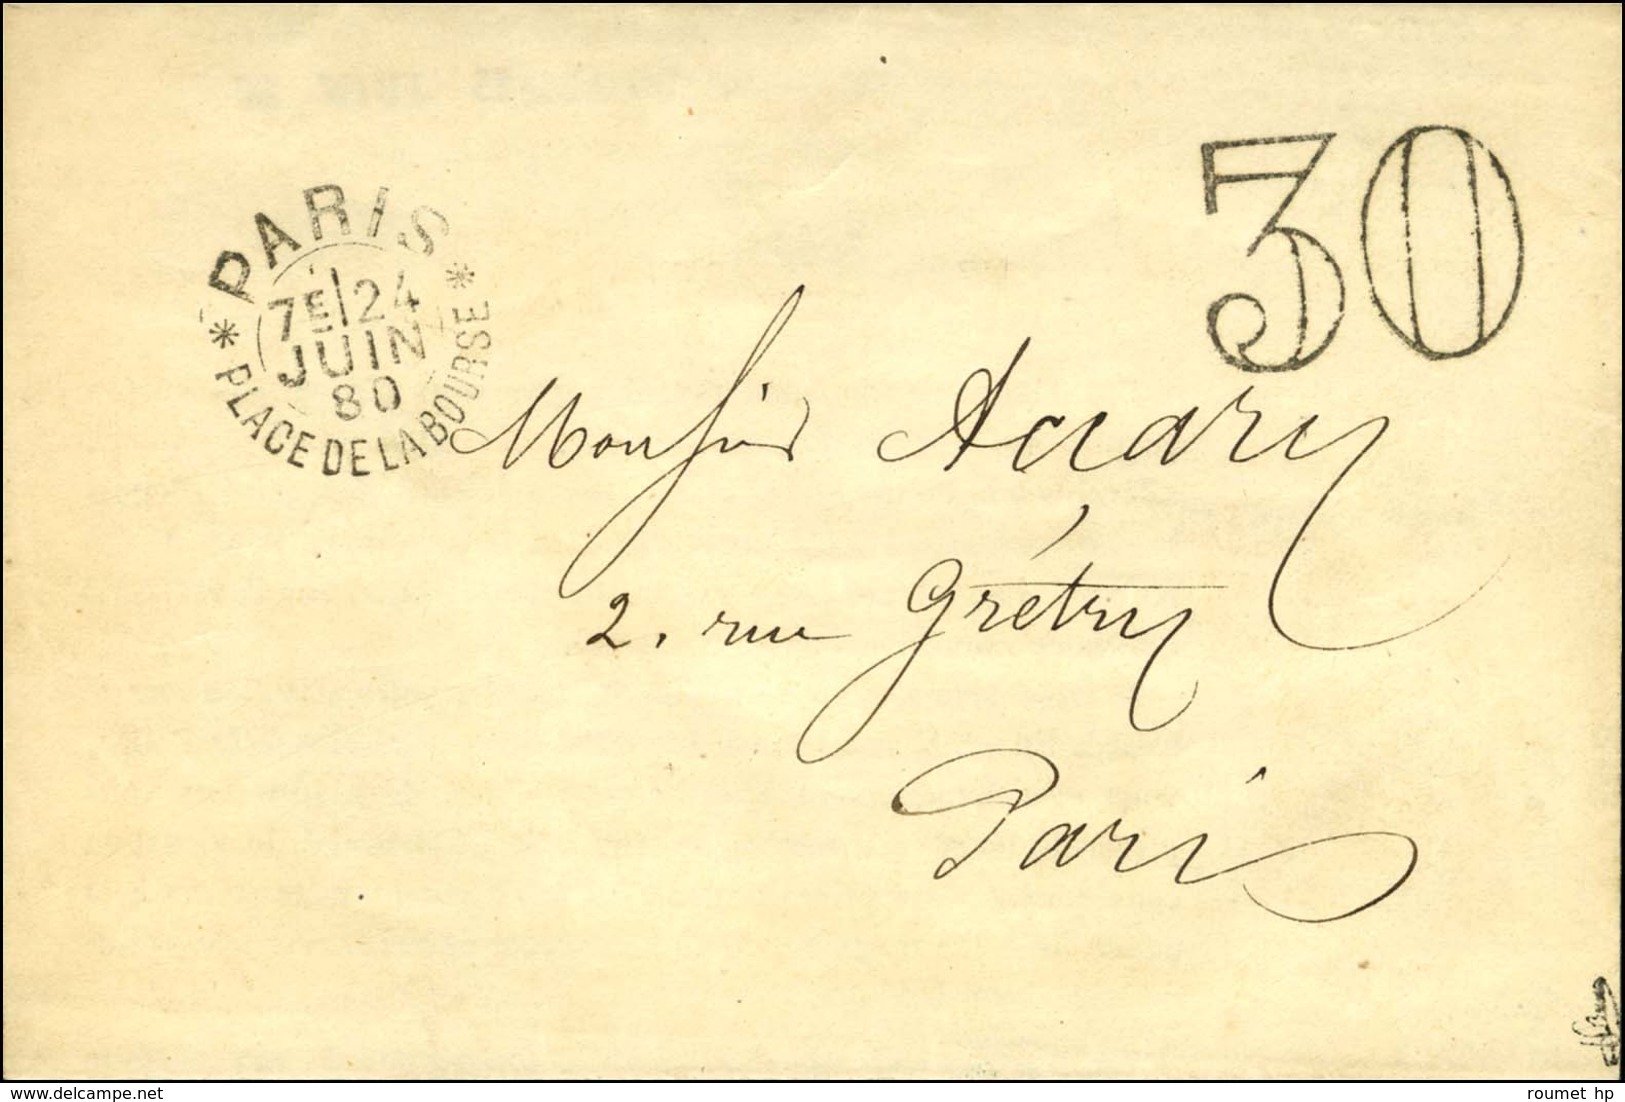 PARIS
7E 24
JUIN
80
* PLACE DE LA BOURSE *
30
Monsieur
2. rue Grétry
Paris
delcampe.net
roumet hp